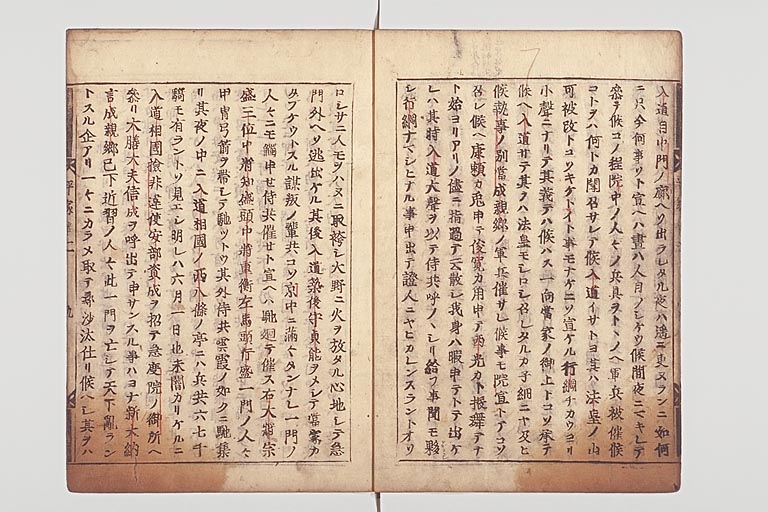 入道自中門ノ廊ヘソ出ラレタル夜ハ遥ニ更ヌランニ如何
ニ只今何事ソト宣ヘハ晝ハ人目ノシケウ候間夜ニマキレテ
參テ候コノ程院中ノ人々ノ兵具ヲトヽノヘ軍兵被催候
コトヲハ何トカ聞召サレテ候入道イサトヨ其ハ法皇ノ山
可被攻トコソキケトイト事モナケニソ宣ケル行綱チカウヨリ
小聲ニナリテ其義テハ候ハス一向當家ノ御上トコソ承テ
候ヘ入道サテ其ヲハ法皇モシロシ召レタルカ子細ニヤ及ヒ
候執事ノ別當成親ノ軍兵催サレ候事モ院宣トテコソ
召レ候ヘ康頼カ兎申テ俊寛カ角申テ西光カト振舞テナ
ト始ヨリアリノ儘ニ指過テ云散シ我身ハ暇申テトテ出ケ
レハ其時入道大聲ヲ以テ侍共呼ノヽシリ給フ事聞モ夥
シ行綱ナマシヒナル事申出テ證人ニヤヒカレンスラントオソ
ロシサニ人モヲハヌニ取袴シ大野ニ火ヲ放タル心地シテ急
門外ヘソ逃出ケル其後入道筑後守貞能ヲメシテ當家カ
タフケウトスル謀叛ノ輩共コソ京中ニ滿々タンナレ一門ノ
人々ニモ觸申セ侍共催セト宣ヘハ馳廻テ催ス右大將宗
盛三位中將知盛頭中將重衡左馬頭行盛一門ノ人々
甲冑弓箭ヲ帶シテ馳ツトウ其外侍共雲霞ノ如クニ馳集
リ其夜ノ中ニ入道相國ノ西八條ノ亭ニハ兵共六七千
騎モ有ラントソ見エシ明レハ六月一日也未闇カリケルニ
入道相國撿非違使安部資成ヲ招テ急度院ノ御所ヘ
參リ大膳大夫信成ヲ呼出テ申サンスル事ハヨナ新大納
言成親卿已下近習ノ人々此一門ヲ亡シテ天下亂ラン
トスル企アリ一々ニカラメ取テ尋沙汰仕リ候ヘシ其ヲハ